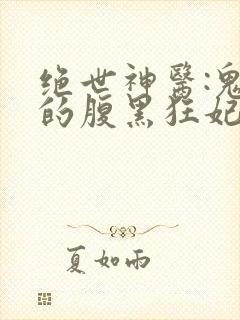 绝世神醫:鬼
的腹黑狂妃
夏如雨